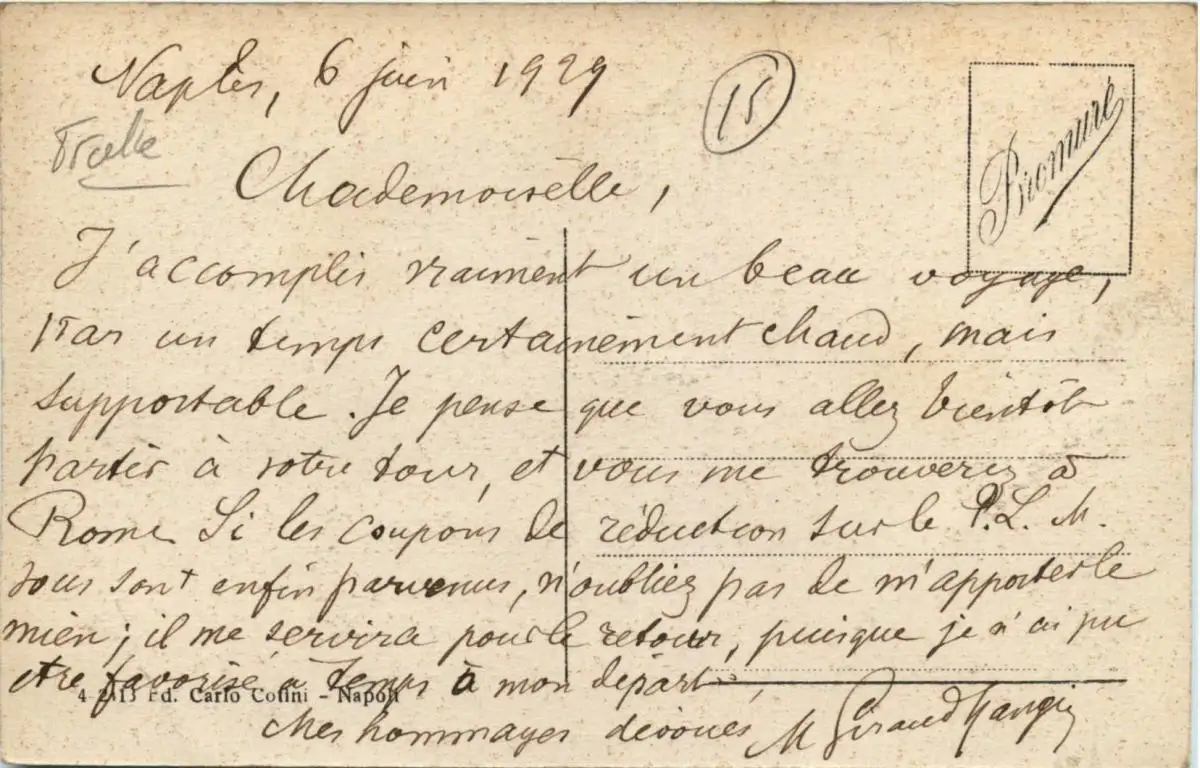 Naples, 6 juin 1929
15
Bromure
Mademoiselle,
J'accomplis vraiment un beau voyage,
par un temps certainement chaud, mais
supportable. Je pense que vous allez bientôt
partir à votre tour, et vous me trouverez à
Rome. Si les coupons de réduction sur le P.L.M.
vous sont enfin parvenus, n'oubliez pas de m'apporter le
mien ; il me servira pour le retour, puisque je n'ai pu
être favorisé à temps à mon départ.
Mes hommages dévoués, M Giraud
Ed. Carlo Cotini - Napoli